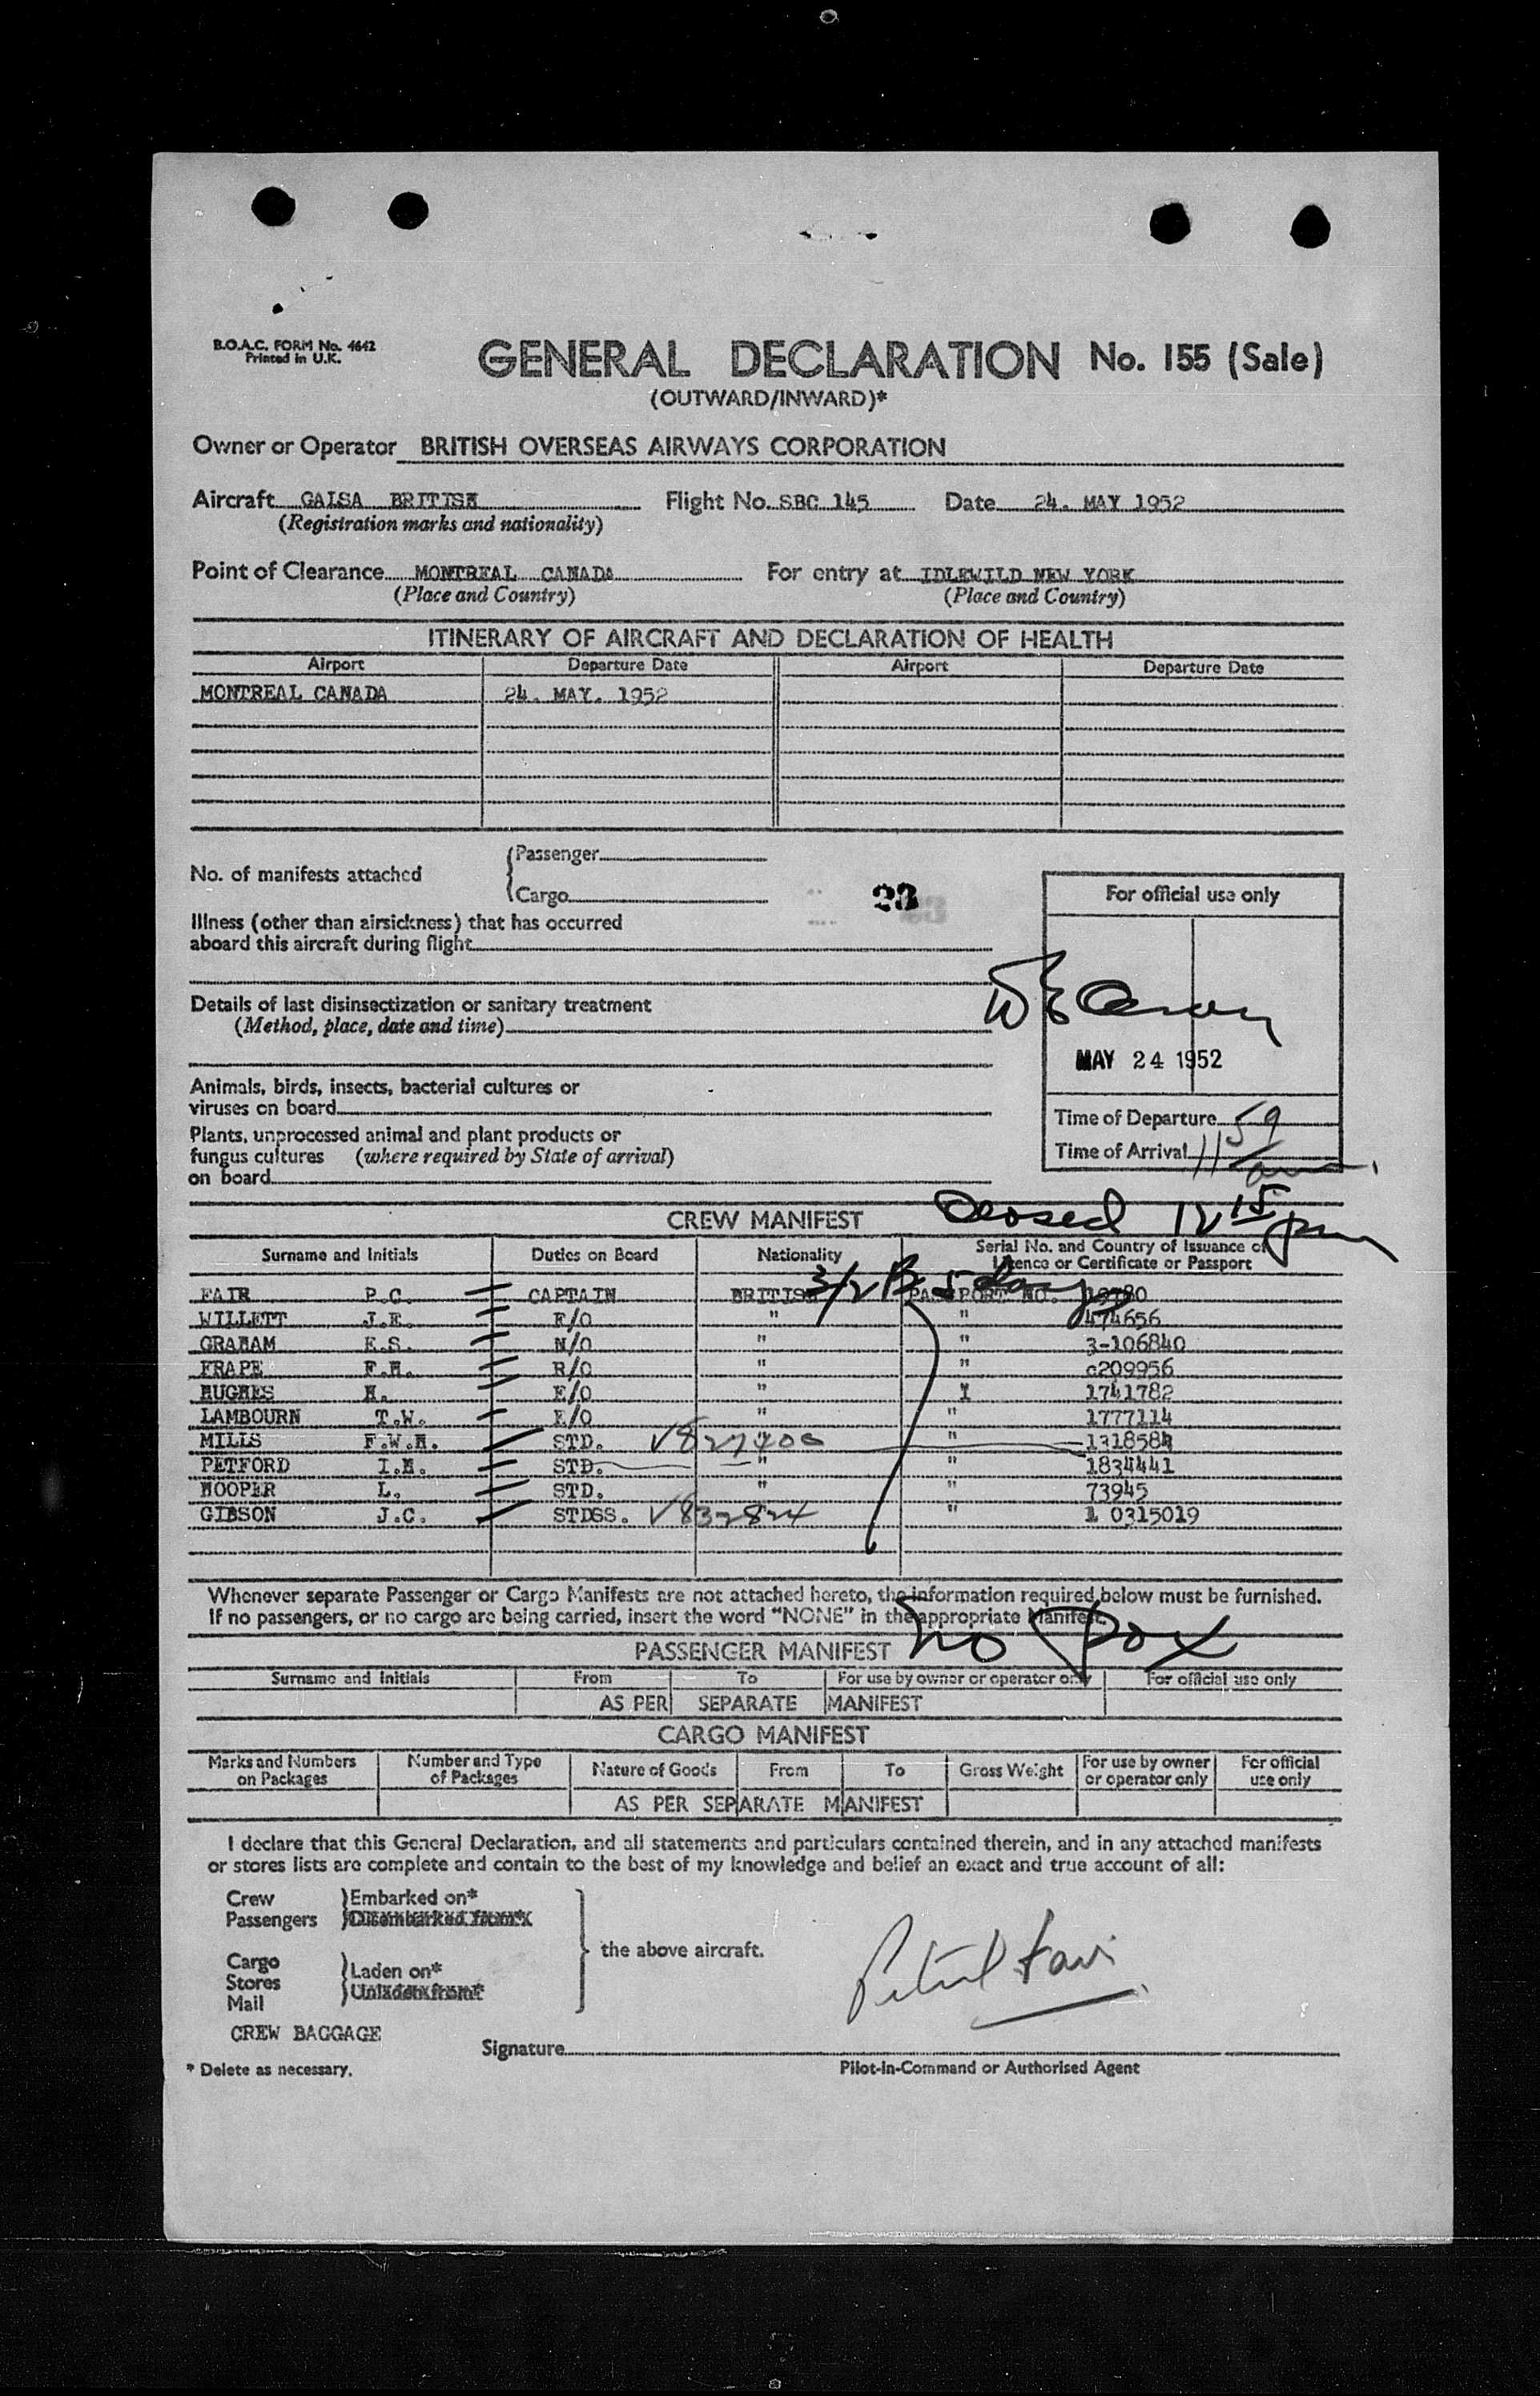 B.O.A.C. FORM No. 4642
Printed in U.K.
GENERAL DECLARATION No. 155 (Sale)
(OUTWARD/INWARD)*
Owner or Operator BRITISH OVERSEAS AIRWAYS CORPORATION
Aircraft GALSA BRITISH Flight No. SBC 145 Date 24. MAY 1952
(Registration marks and nationality)
Point of Clearance MONTREAL CANADA For entry at IDLEWILD NEW YORK
(Place and Country) (Place and Country)
ITINERARY OF AIRCRAFT AND DECLARATION OF HEALTH
Airport Departure Date Airport Departure Date
MONTREAL CANADA 24. MAY. 1952
No. of manifests attached
Passenger
Cargo
23
For official use only
Illness (other than airsickness) that has occurred
aboard this aircraft during flight
Details of last disinsectization or sanitary treatment
(Method, place, date and time)
MAY 24 1952
Animals, birds, insects, bacterial cultures or
viruses on board
Time of Departure
Plants, unprocessed animal and plant products or
fungus cultures (where required by State of arrival)
on board
Time of Arrival 11 59
CREW MANIFEST
12 15 pm
Surname and Initials Duties on Board Nationality Serial No. and Country of Issuance of
Licence or Certificate or Passport
FAIR P.C. CAPTAIN BRITISH PASSPORT NO.
WILLETT J.E. F/O " " 474656
GRAHAM E.S. N/O " " 3-106840
FRAPE F.H. R/O " " c209956
HUGHES H. E/O " 1741782
LAMBOURN T.W. E/O " " 1777114
MILLS F.W.H. STD. V827400 " 1318584
PETFORD I.H. STD. " " 1834441
HOOPER L. STD. " " 73945
GIBSON J.C. STDSS. V832824 " 1 0315019
Whenever separate Passenger or Cargo Manifests are not attached hereto, the information required below must be furnished.
If no passengers, or no cargo are being carried, insert the word "NONE" in the appropriate Manifest.
PASSENGER MANIFEST no pax
Surname and Initials From To For use by owner or operator only For official use only
AS PER SEPARATE MANIFEST
CARGO MANIFEST
Marks and Numbers on Packages Number and Type of Packages Nature of Goods From To Gross Weight For use by owner or operator only For official use only
AS PER SEPARATE MANIFEST
I declare that this General Declaration, and all statements and particulars contained therein, and in any attached manifests
or stores lists are complete and contain to the best of my knowledge and belief an exact and true account of all:
Crew Embarked on*
Passengers Disembarked from*
the above aircraft.
Cargo
Stores Laden on*
Mail Unladen from*
CREW BAGGAGE
Signature
* Delete as necessary. Pilot-in-Command or Authorised Agent